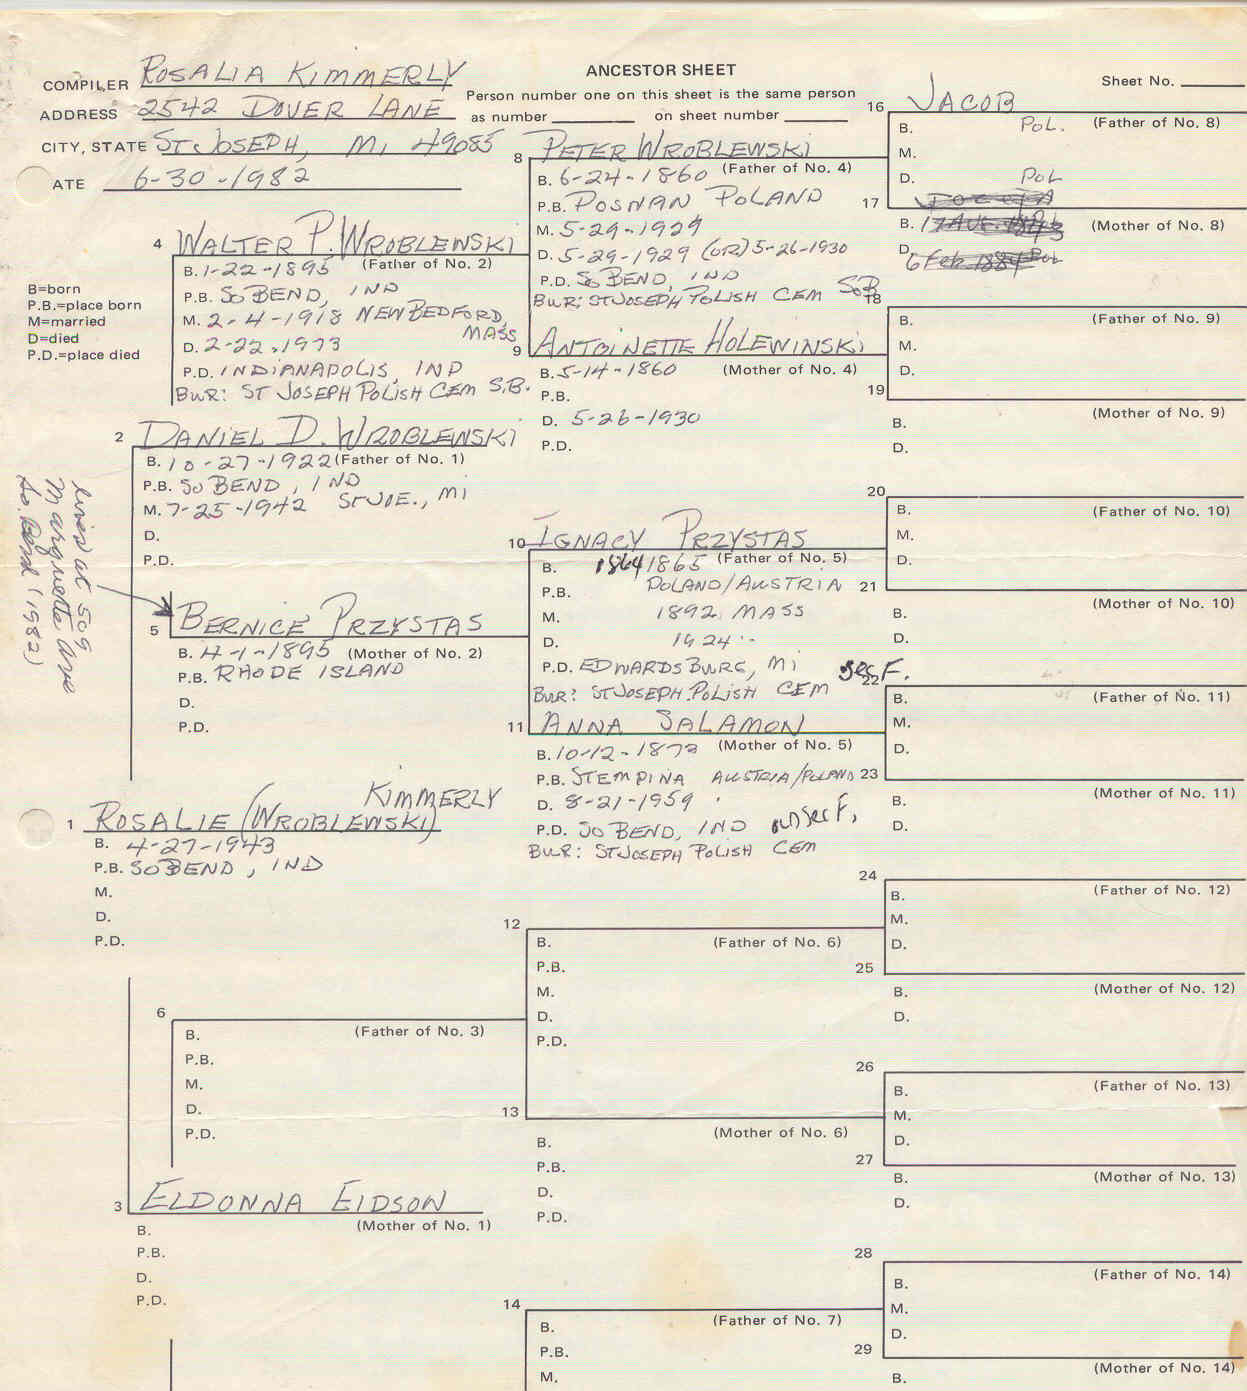 ANCESTOR SHEET
Sheet No.
COMPILER ROSALIA KIMMERLY
ADDRESS 2542 DOVER LANE
CITY, STATE ST JOSEPH, MI 49085
ATE 6-30-1982
Person number one on this sheet is the same person
as number on sheet number
B=born
P.B.=place born
M=married
D=died
P.D.=place died
16 JACOB
B. POL. (Father of No. 8)
M.
D. POL
17
B. (Mother of No. 8)
D. 6 Feb 1884 Pol
8 PETER WROBLEWSKI
B. 6-24-1860 (Father of No. 4)
P.B. POSNAN POLAND
M. 5-29-1929
D. 5-29-1929 (OR) 5-26-1930
P.D. SO BEND, IND
BUR: ST JOSEPH POLISH CEM SoB
4 WALTER P. WROBLEWSKI
B. 1-22-1895 (Father of No. 2)
P.B. SO BEND, IND
M. 2-4-1918 NEW BEDFORD, MASS
D. 2-22-1973
P.D. INDIANAPOLIS, IND
BUR: ST JOSEPH POLISH CEM S.B.
9 ANTOINETTE HOLEWINSKI
B. 5-14-1860 (Mother of No. 4)
P.B.
D. 5-26-1930
P.D.
18
B. (Father of No. 9)
M.
D.
19
B. (Mother of No. 9)
D.
2 DANIEL D. WROBLEWSKI
B. 10-27-1922 (Father of No. 1)
P.B. SO BEND, IND
M. 7-25-1942 ST JOE., MI
D.
P.D.
lives at 509
Marquette Ave
So. Bend (1982)
5 BERNICE PRZYSTAS
B. 4-1-1895 (Mother of No. 2)
P.B. RHODE ISLAND
D.
P.D.
10 IGNACY PRZYSTAS
B. 1864 1865 (Father of No. 5)
P.B. POLAND/AUSTRIA
M. 1892 MASS
D. 1924
P.D. EDWARDSBURG, MI sec F.
BUR: ST JOSEPH POLISH CEM
11 ANNA SALAMON
B. 10-12-1873 (Mother of No. 5)
P.B. STEMPINA AUSTRIA/POLAND
D. 8-21-1959
P.D. SO BEND, IND unsec F,
BUR: ST JOSEPH POLISH CEM
20
B. (Father of No. 10)
M.
D.
21
B. (Mother of No. 10)
D.
22
B. (Father of No. 11)
M.
D.
23
B. (Mother of No. 11)
D.
KIMMERLY
1 ROSALIE (WROBLEWSKI)
B. 4-27-1943
P.B. SO BEND, IND
M.
D.
P.D.
24
B. (Father of No. 12)
M.
D.
25
B. (Mother of No. 12)
D.
12
B. (Father of No. 6)
P.B.
M.
D.
P.D.
6
B. (Father of No. 3)
P.B.
M.
D.
P.D.
13
B. (Mother of No. 6)
P.B.
D.
P.D.
26
B. (Father of No. 13)
M.
D.
27
B. (Mother of No. 13)
D.
3 ELDONNA EIDSON
B. (Mother of No. 1)
P.B.
D.
P.D.
28
B. (Father of No. 14)
M.
D.
29
B. (Mother of No. 14)
14
B. (Father of No. 7)
P.B.
M.